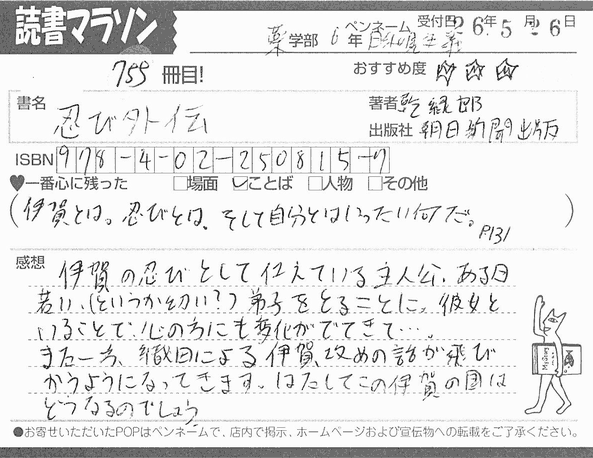 読書マラソン
薬学部 6年 ペンネーム 日曜主義 受付日 26年5月26日
755冊目!
おすすめ度 ☆☆☆
書名 忍び外伝
著者 乾緑郎
出版社 朝日新聞出版
ISBN 978-4-02-250815-7
♥一番心に残った □場面 ☑ことば □人物 □その他
(伊賀とは。忍びとは、そして自分とはいったい何だ。P131)
感想
伊賀の忍びとして仕えている主人公。ある日
若い、(というか幼い?)弟子をとることに。彼女と
いることで、心の方にも変化がでてきて…。
また一方、織田による伊賀攻めの話が飛び
かうようになってきます。はたしてこの伊賀の国は
どうなるのでしょう
●お寄せいただいたPOPはペンネームで、店内で掲示、ホームページおよび宣伝物への転載をご了承ください。